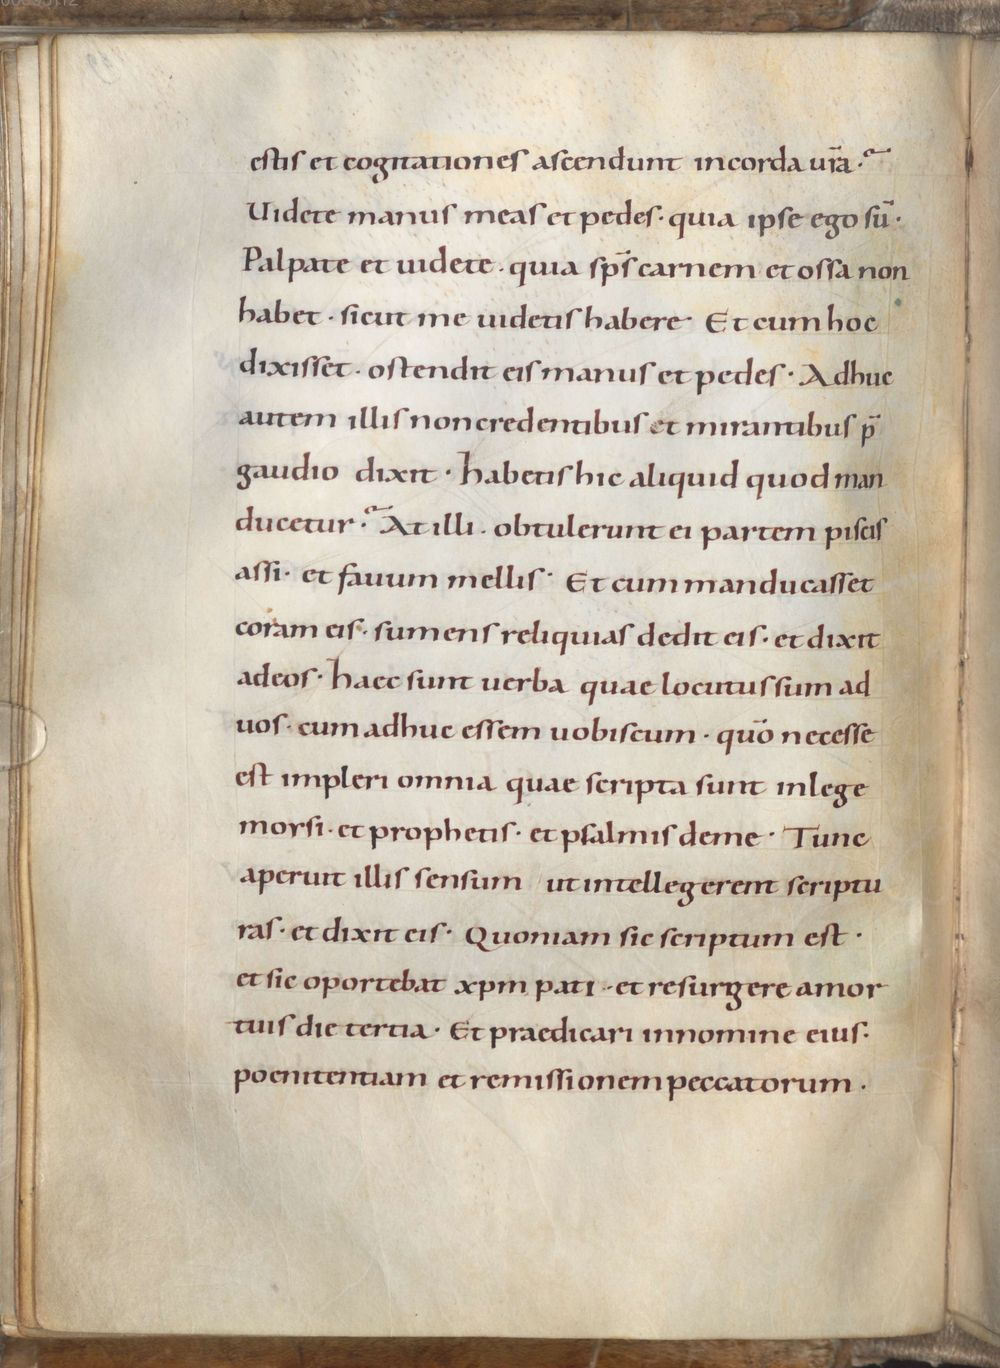 estis et cogitationes ascendunt incorda ur̄a·
Uidete manus meas et pedes· quia ipse ego sū·
Palpate et uidete· quia sp̄s carnem et ossa non
habet· sicut me uidetis habere· Et cum hoc
dixisset· ostendit eis manus et pedes· Adhuc
autem illis non credentibus et mirantibus p̄
gaudio dixit· habetis hic aliquid quod man
ducetur· At illi· obtulerunt ei partem piscis
assi· et fauum mellis· Et cum manducasset
coram eis· sumens reliquias dedit eis· et dixit
adeos· haec sunt uerba quae locutus sum ad
uos· cum adhuc essem uobiscum· quo̅ necesse
est impleri omnia quae scripta sunt inlege
morsi· et prophetis· et psalmis deme· Tunc
aperuit illis sensum ut intellegerent scriptu
ras· et dixit eis· Quoniam sic scriptum est·
et sic oportebat xpm pati· et resurgere amor
tuis die tertia· Et praedicari innomine eius·
poenitentiam et remissionem peccatorum·